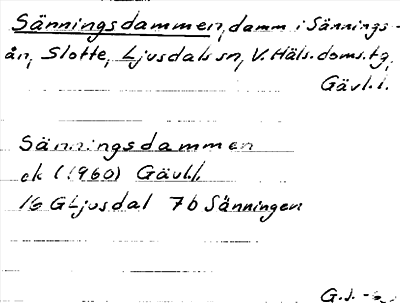 Sänningsdammen, damm i Sännings-
ån, Slotte, Ljusdals sn, V. Häls. doms. tg,
Gävl. l.
Sänningsdammen
ek (1960) Gävl.l.
16 G Ljusdal 7b Sänningen
G.J.